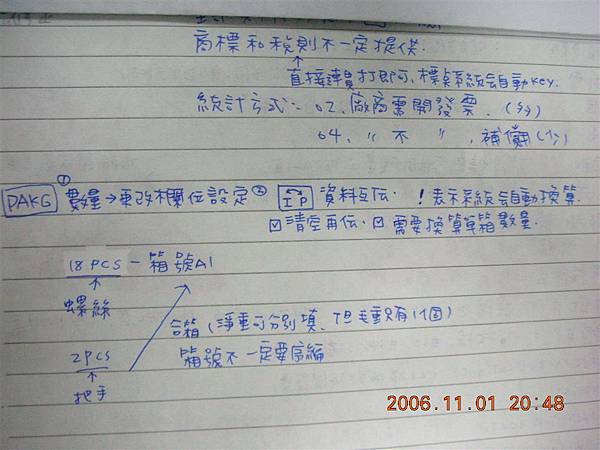 商標和稅則不一定提供.
↑
直接連貫打即可、標點系統会自動key.
統計方式: 02、廠商需開發票. (多)
04、〃 不 〃 , 補償(少)
PAKG ① 數量→更改欄位設定 ② I P 資料互伝. ! 表示系統会自動換算.
☑清空再伝、☑需要換算單箱數量.
18 PCS — 箱號A1
↑
螺絲
合箱(淨重可分別填、但毛重只有1個)
2PCS 箱號不一定要序編
↑
把手
2006.11.01 20:48